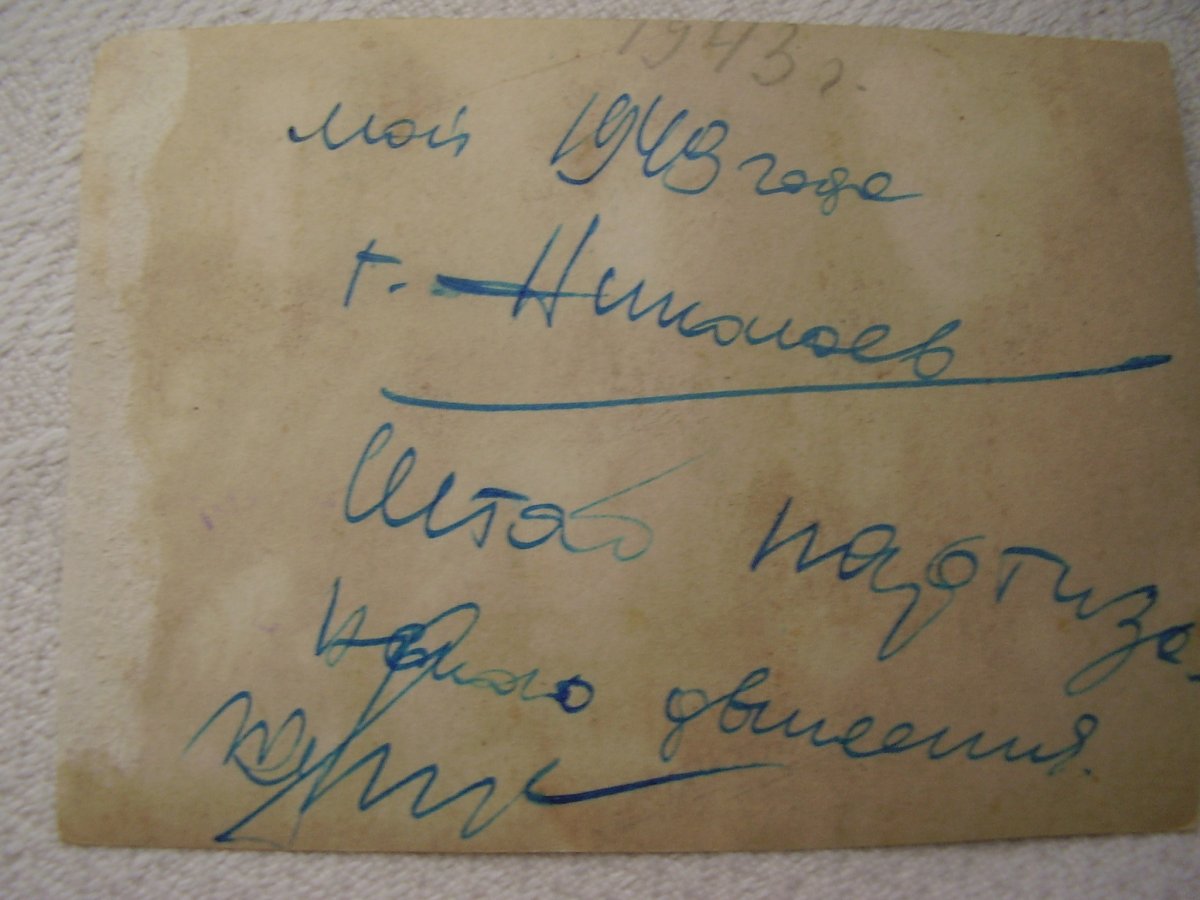 1943 г.
май 1943 года
г. Николаев
Штаб партиза-
нского движения.